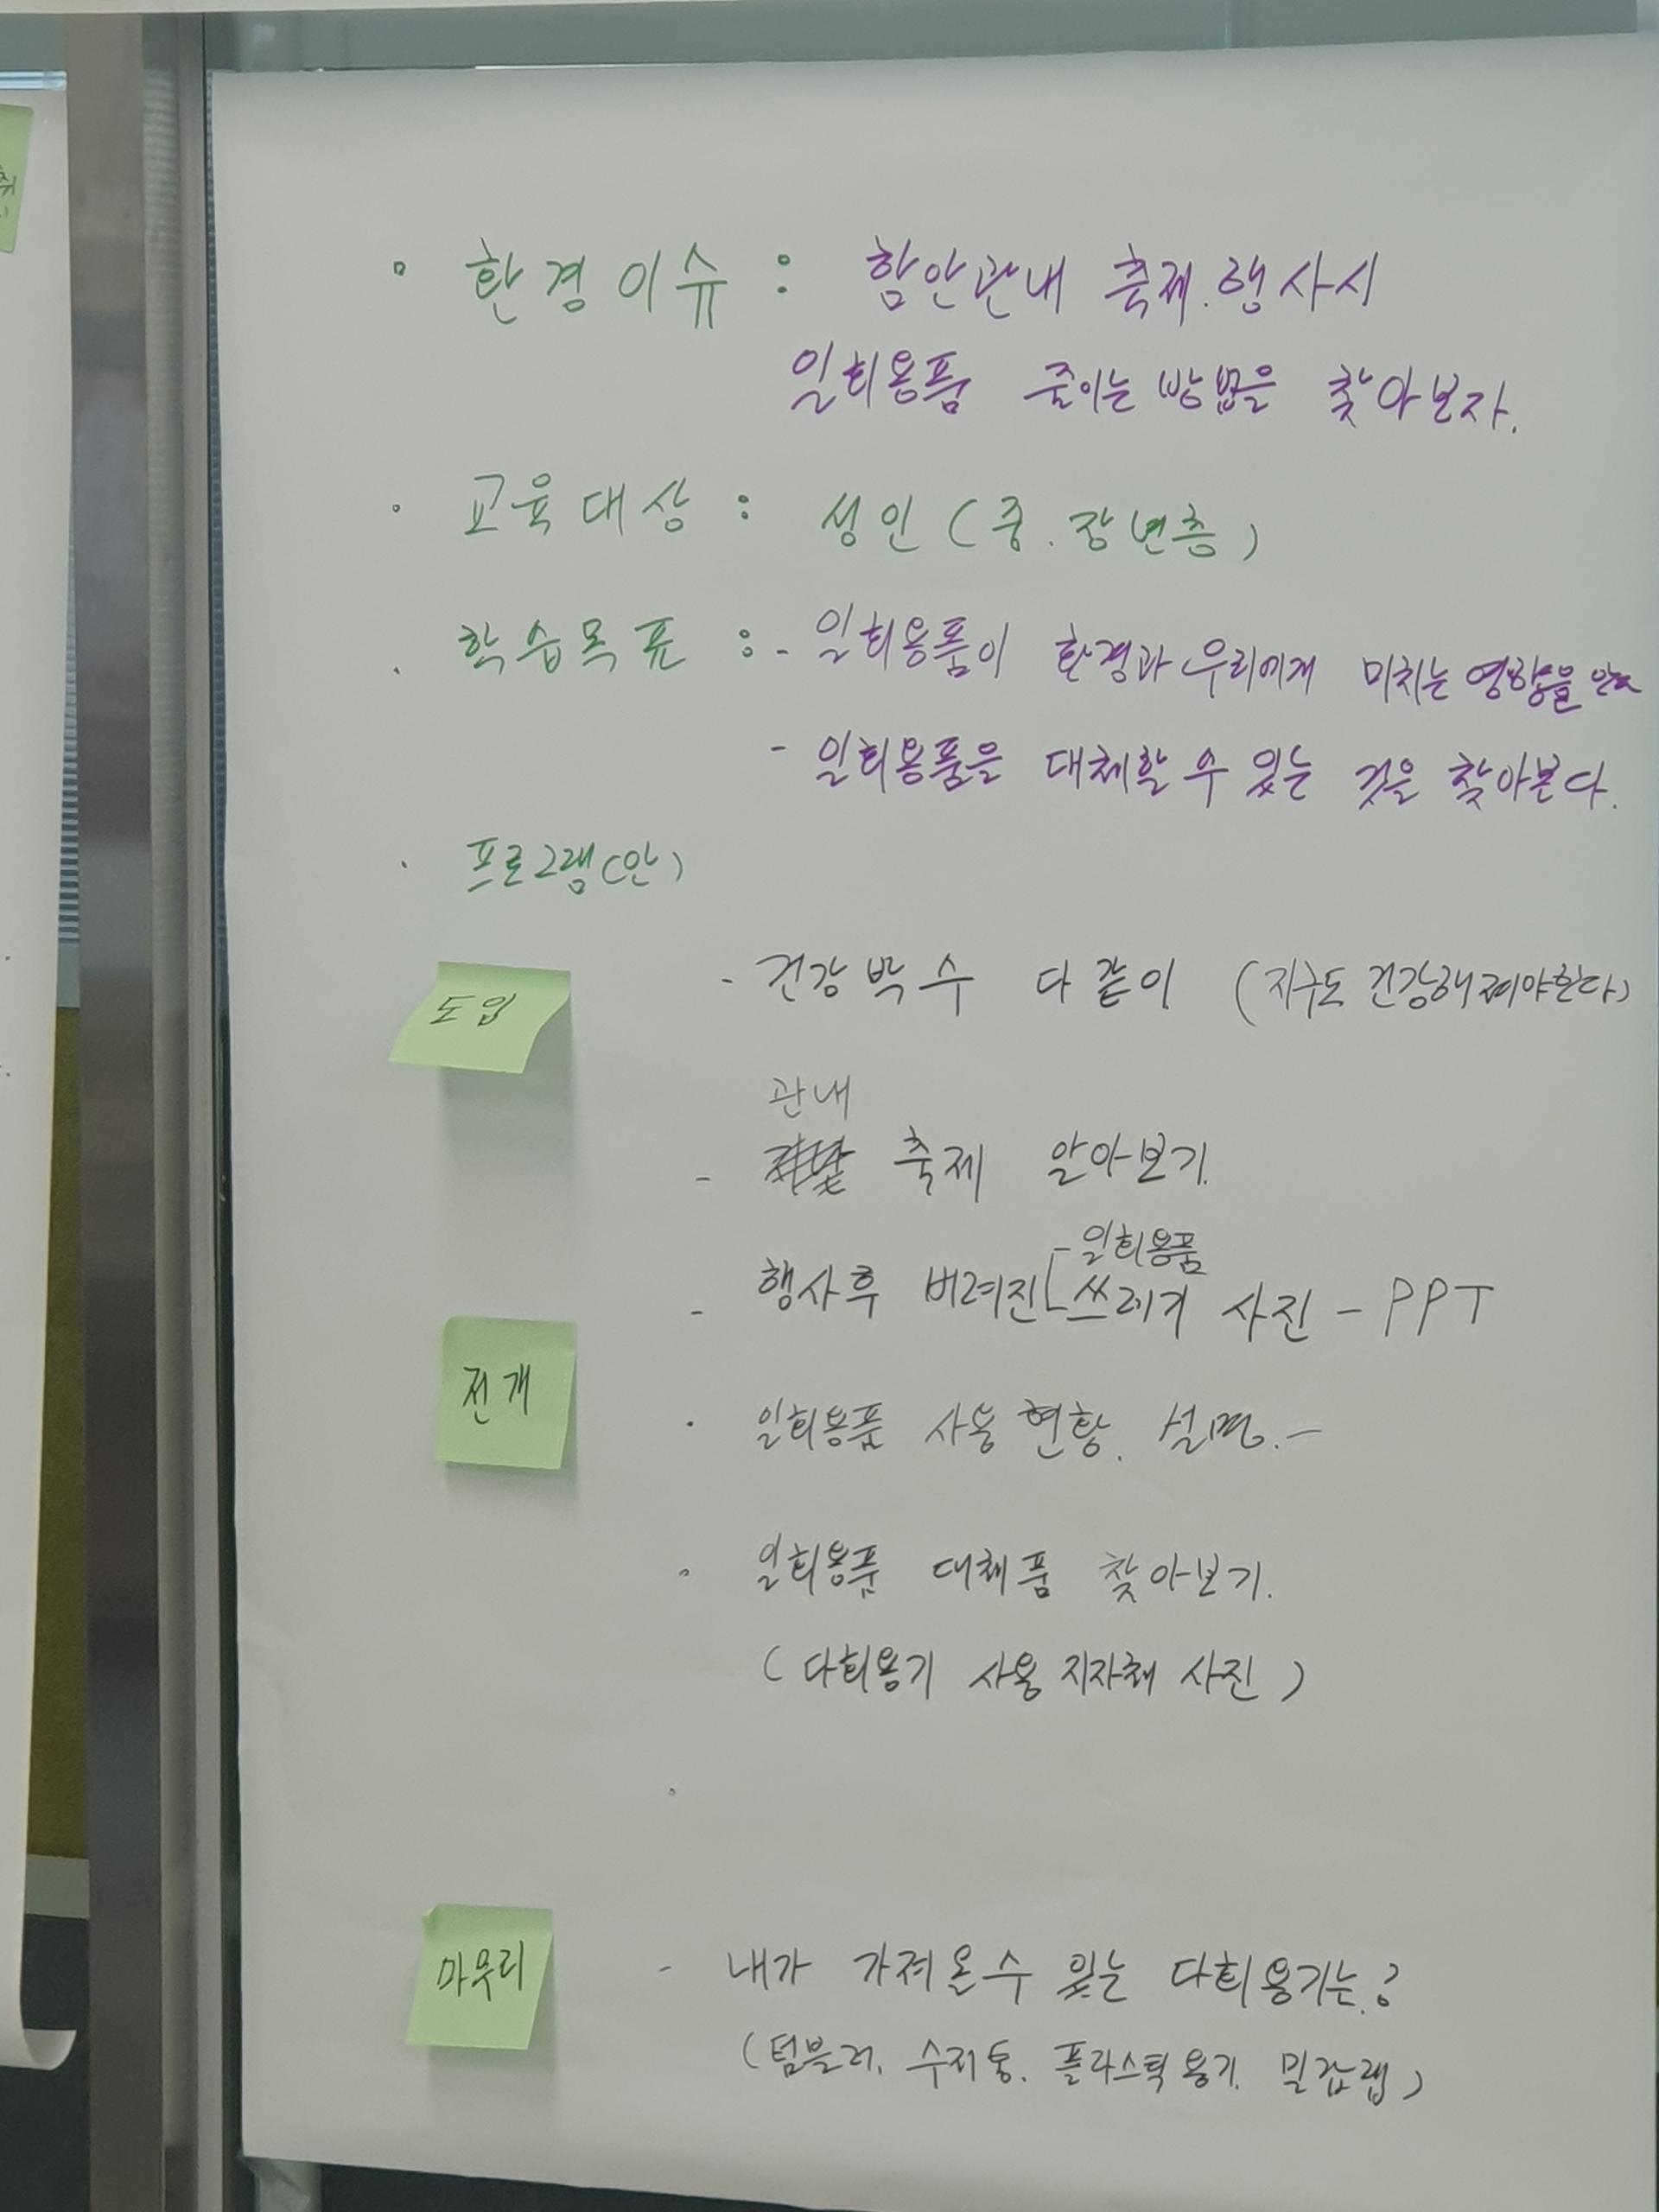 ◦ 환경이슈 : 함안관내 축제.행사시
일회용품 줄이는 방법을 찾아보자.
◦ 교육대상 : 성인 (중.장년층)
· 학습목표 : - 일회용품이 환경과 우리에게 미치는 영향을 안다
- 일회용품을 대체할 수 있는 것을 찾아본다.
· 프로그램(안)
도입
- 건강박수 다같이 (지구도 건강해져야한다)
관내
- 축제 알아보기.
- 일회용품
- 행사후 버려진 쓰레기 사진 - PPT
전개
· 일회용품 사용현황. 설명. -
◦ 일회용품 대체품 찾아보기.
(다회용기 사용 지자체 사진)
◦
마무리
- 내가 가져올수 있는 다회용기는?
(텀블러, 수저통, 플라스틱용기, 밀랍랩)